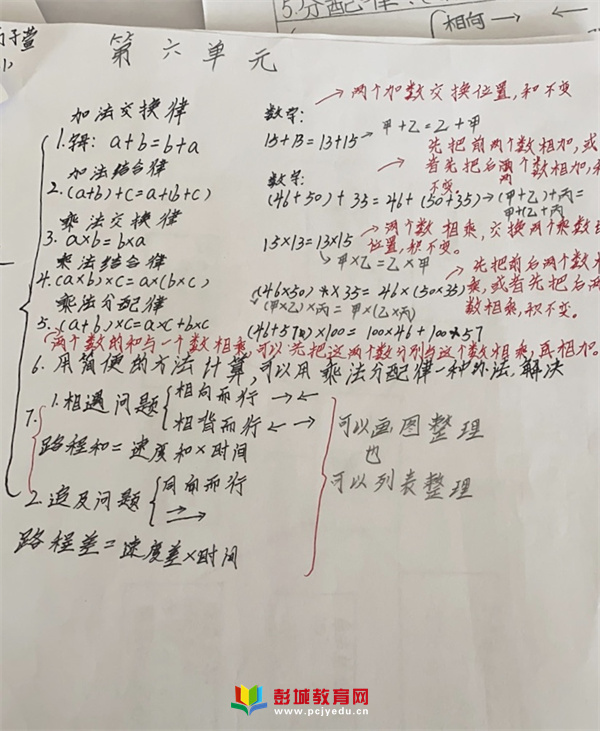 5.分配律
相向
第六单元
加法交换律
1.字母: a+b=b+a
数字:
15+13=13+15
→两个加数交换位置,和不变
→甲+乙=乙+甲
加法结合律
2.(a+b)+c=a+(b+c)
数字:
(46+50)+35=46+(50+35)→(甲+乙)+丙=
甲+(乙+丙
先把前两个数相加,或
者先把后两个数相加,和
不变
乘法交换律
3. a×b=b×a
15×13=13×15
→甲×乙=乙×甲
→两个数相乘,交换两个乘数
位置,积不变。
乘法结合律
4.(a×b)×c=a×(b×c)
(46×50)×35=46×(50×35)
(甲×乙)×丙=甲×(乙×丙)
→先把前后两个数
乘,或者首先把后两
数相乘,积不变。
乘法分配律
5.(a+b)×c=a×c+b×c
(46+57)×100=100×46+100×57
(两个数的和与一个数相乘,可以先把这两个数分别与这个数相乘,再相加。
6.用简便的方法计算,可以用乘法分配律一种办法解决
7.
1.相遇问题
相向而行→←
相背而行←→
路程和=速度和×时间
2.追及问题
同向而行
路程差=速度差×时间
可以画图整理
也
可以列表整理
彭城教育网
www.pcjyedu.cn